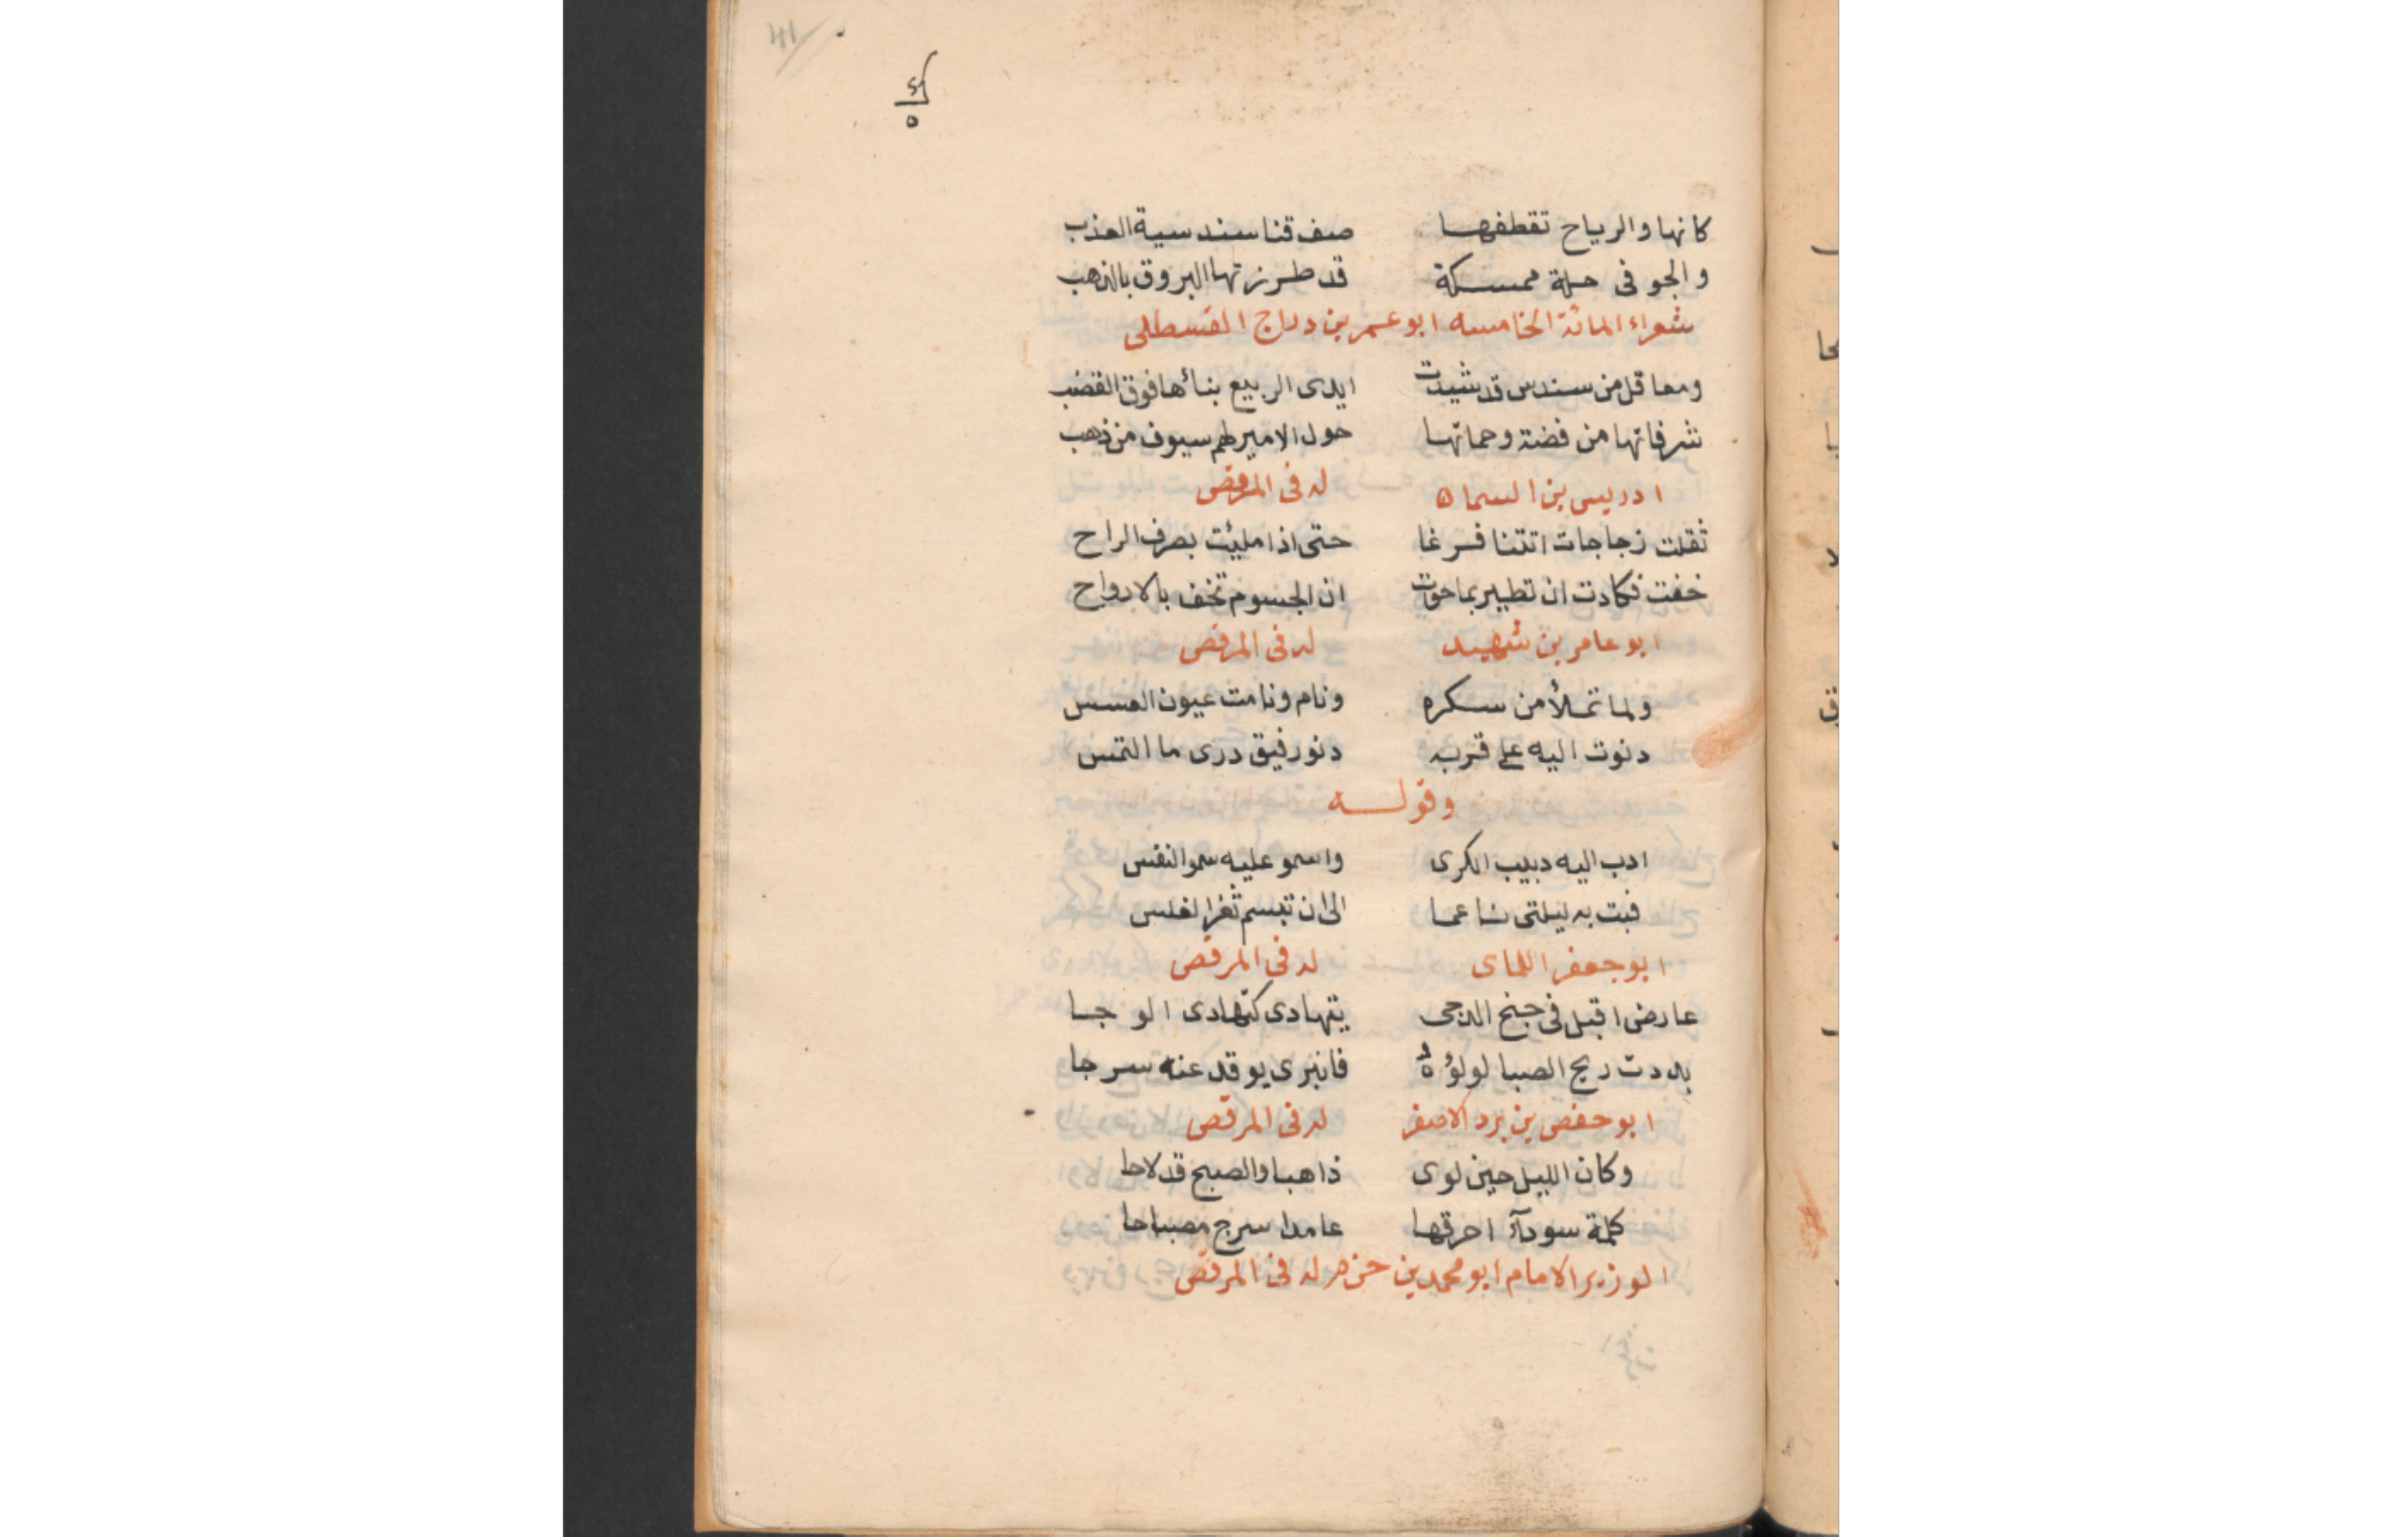 كانها والرياح تقطفها صف قنا سندسية العذب
والجو فى حلة ممسكة قد طرزتها البروق بالذهب
شعراء المائة الخامسه ابو عمر بن دراج القسطلى
ومعاقل من سندس قد شيدت ايدى الربيع بنائها فوق القضب
شرفاتها من فضة وحماتها حول الامير لهم سيوف من ذهب
ادريس بن السمان له فى المرقص
ثقلت زجاجات اتتنا فرغا حتى اذا مليئت بصرف الراح
خفت فكادت ان تطير بما حوت ان الجسوم تخف بالارواح
ابو عامر بن شهيد له فى المرقص
ولما تملأ من سكره ونام ونامت عيون العسس
دنوت اليه على قربه دنو رفيق درى ما التمس
وقوله
ادب اليه دبيب الكرى واسمو عليه سمو النفس
فبت به ليلتى ناعما الى ان تبسم ثغر الغلس
ابو جعفر اللماى له فى المرقص
عارض اقبل فى جنح الدجى يتهادى كتهادى الوجا
بددت ريح الصبا لولؤه فانبرى يوقد عنه سرجا
ابو حفص بن برد الاصغر له فى المرقص
وكان الليل حين لوى ذاهبا والصبح قد لاحا
كلمة سودآء احرقها عامدا سرج مصباحا
الوزير الامام ابو محمد بن حزم له فى المرقص